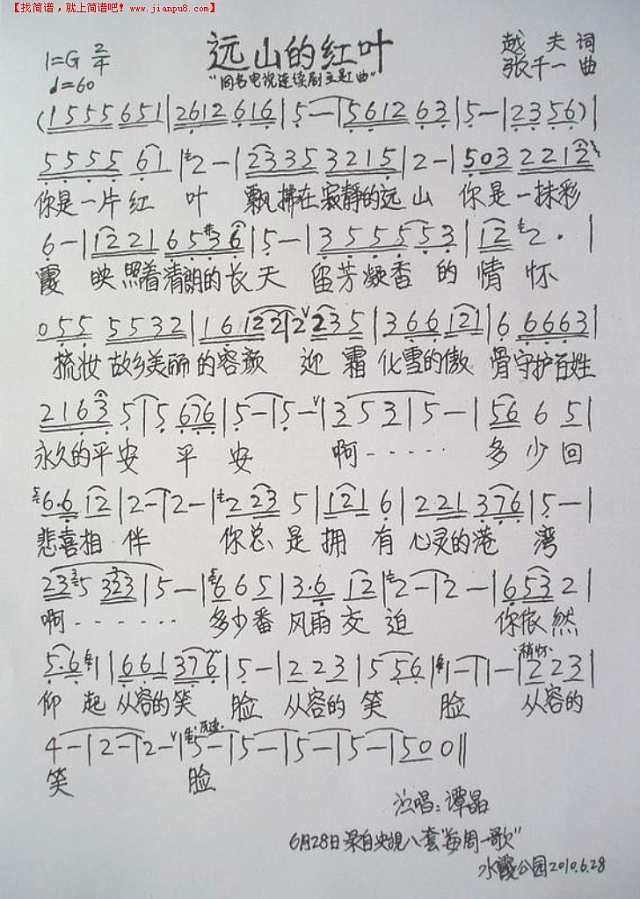 【找简谱,就上简谱吧! www.jianpu8.com】
远山的红叶
"同名电视连续剧主题曲"
1=G 2/4
♩=60
越 夫 词
张千一 曲
(1555 651|2612 616|5-|5612 63|5-|2356)|
5555 61|2-|2335 3215|2-|503 2212|
你是一片红 叶 飘拂在寂静的远山 你是一抹彩
6-|1221 6536|5-|355553|12 2·|
霞 映照着清朗的长天 留芳凝香的情怀
055 5532|16122|2 235|366 121|6 6663|
梳妆故乡美丽的容颜 迎霜化雪的傲骨守护百姓
2163 5|5 676|5-|5-|353|5-|56 6 5|
永久的平安 平 安 啊····· 多少回
6·6 12|2-|2-|2 23 5|121 6|221 376|5-|
悲喜相伴 你总是拥有心灵的港湾
235 323|5-|6 6 5|3·6 12|2-|2-|653 2|
啊······ 多少番风雨交迫 你依然
5·6 1|661 376|5-|2 2 3|5 56|1-|1-|2 2 3|
稍慢
仰起从容的笑脸 从容的笑 脸 从容的
4-|2-|2-|5-|5-|5-|5-|500‖
笑 脸
演唱:谭晶
6月28日录自央视八套"每周一歌"
水霞公园2010.6.28